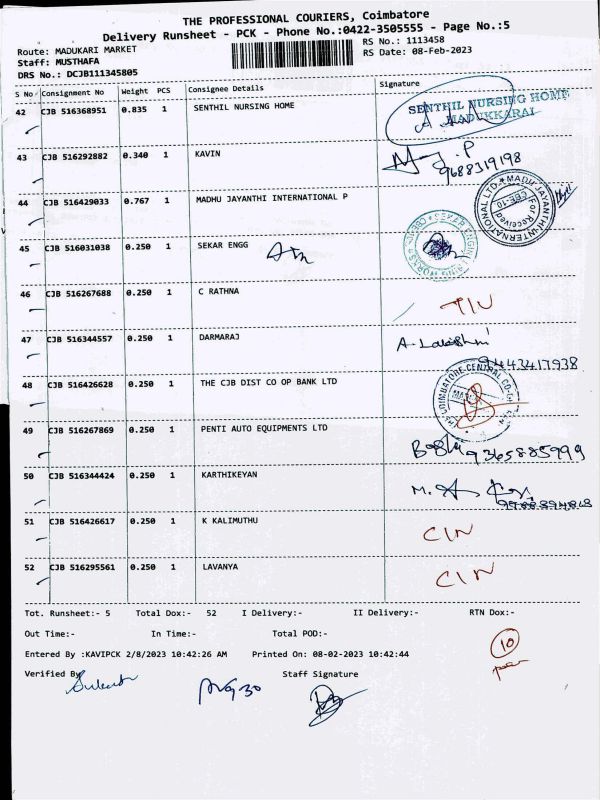 THE PROFESSIONAL COURIERS, Coimbatore
Delivery Runsheet - PCK - Phone No.:0422-3505555 - Page No.:5
Route: MADUKARI MARKET
RS No.: 1113458
Staff: MUSTHAFA
RS Date: 08-Feb-2023
DRS No.: DCJB111345805
S No Consignment No Weight PCS Consignee Details Signature
42 CJB 516368951 0.835 1 SENTHIL NURSING HOME
SENTHIL NURSING HOME
MADUKKARAI
43 CJB 516292882 0.340 1 KAVIN
9688319198
44 CJB 516429033 0.767 1 MADHU JAYANTHI INTERNATIONAL P
45 CJB 516031038 0.250 1 SEKAR ENGG
46 CJB 516267688 0.250 1 C RATHNA
47 CJB 516344557 0.250 1 DARMARAJ A. Lakshmi
9443417938
48 CJB 516426628 0.250 1 THE CJB DIST CO OP BANK LTD
49 CJB 516267869 0.250 1 PENTI AUTO EQUIPMENTS LTD
9365885999
50 CJB 516344424 0.250 1 KARTHIKEYAN
51 CJB 516426617 0.250 1 K KALIMUTHU CIN
52 CJB 516295561 0.250 1 LAVANYA CIN
Tot. Runsheet:- 5 Total Dox:- 52 I Delivery:- II Delivery:- RTN Dox:-
Out Time:- In Time:- Total POD:-
10
Entered By :KAVIPCK 2/8/2023 10:42:26 AM Printed On: 08-02-2023 10:42:44
Verified By Staff Signature